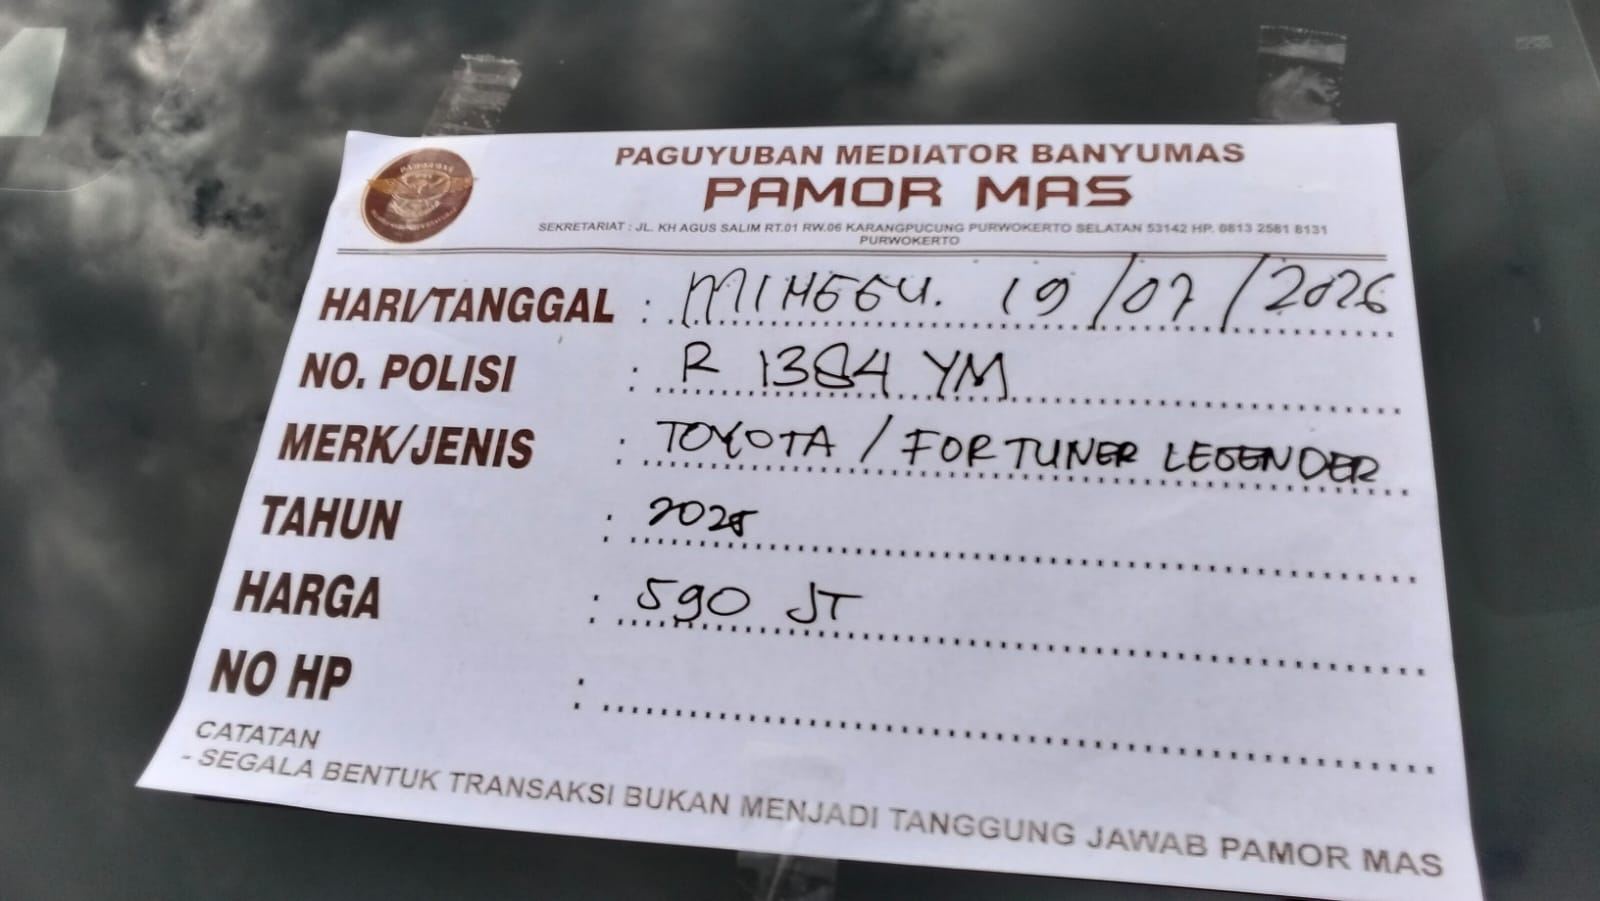 PAGUYUBAN MEDIATOR BANYUMAS
PAMOR MAS
SEKRETARIAT : JL. KH AGUS SALIM RT.01 RW.06 KARANGPUCUNG PURWOKERTO SELATAN 53142 HP. 0813 2581 8131
PURWOKERTO
HARI/TANGGAL : MINGGU. 19/07/2026
NO. POLISI : R 1384 YM
MERK/JENIS : TOYOTA / FORTUNER LEGENDER
TAHUN : 2025
HARGA : 590 JT
NO HP :
CATATAN
- SEGALA BENTUK TRANSAKSI BUKAN MENJADI TANGGUNG JAWAB PAMOR MAS